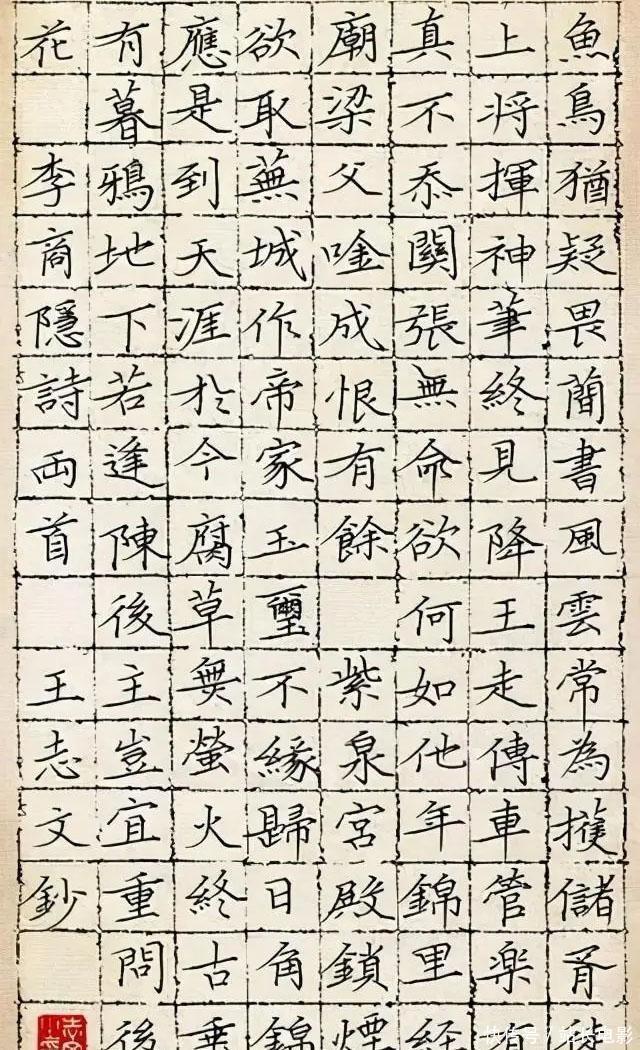 魚鳥猶疑畏簡書風雲常為擁儲胥徒
上將揮神筆終見降王走傳車管楽
真不忝關張無命欲何如他年錦里經
廟梁父唫成恨有餘 紫泉宮殿鎖煙
欲取蕪城作帝家玉璽不緣歸日角錦
應是到天涯於今腐草無螢火終古垂
有暮鴉地下若逢陳後主豈宜重問後
花 李商隱詩両首 王志文鈔